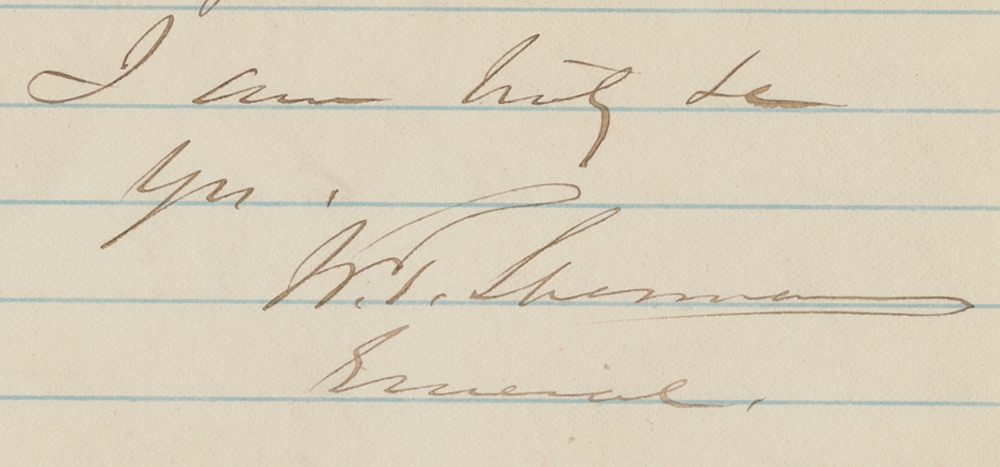 I am truly &c
Yrs.
W. T. Sherman
General.